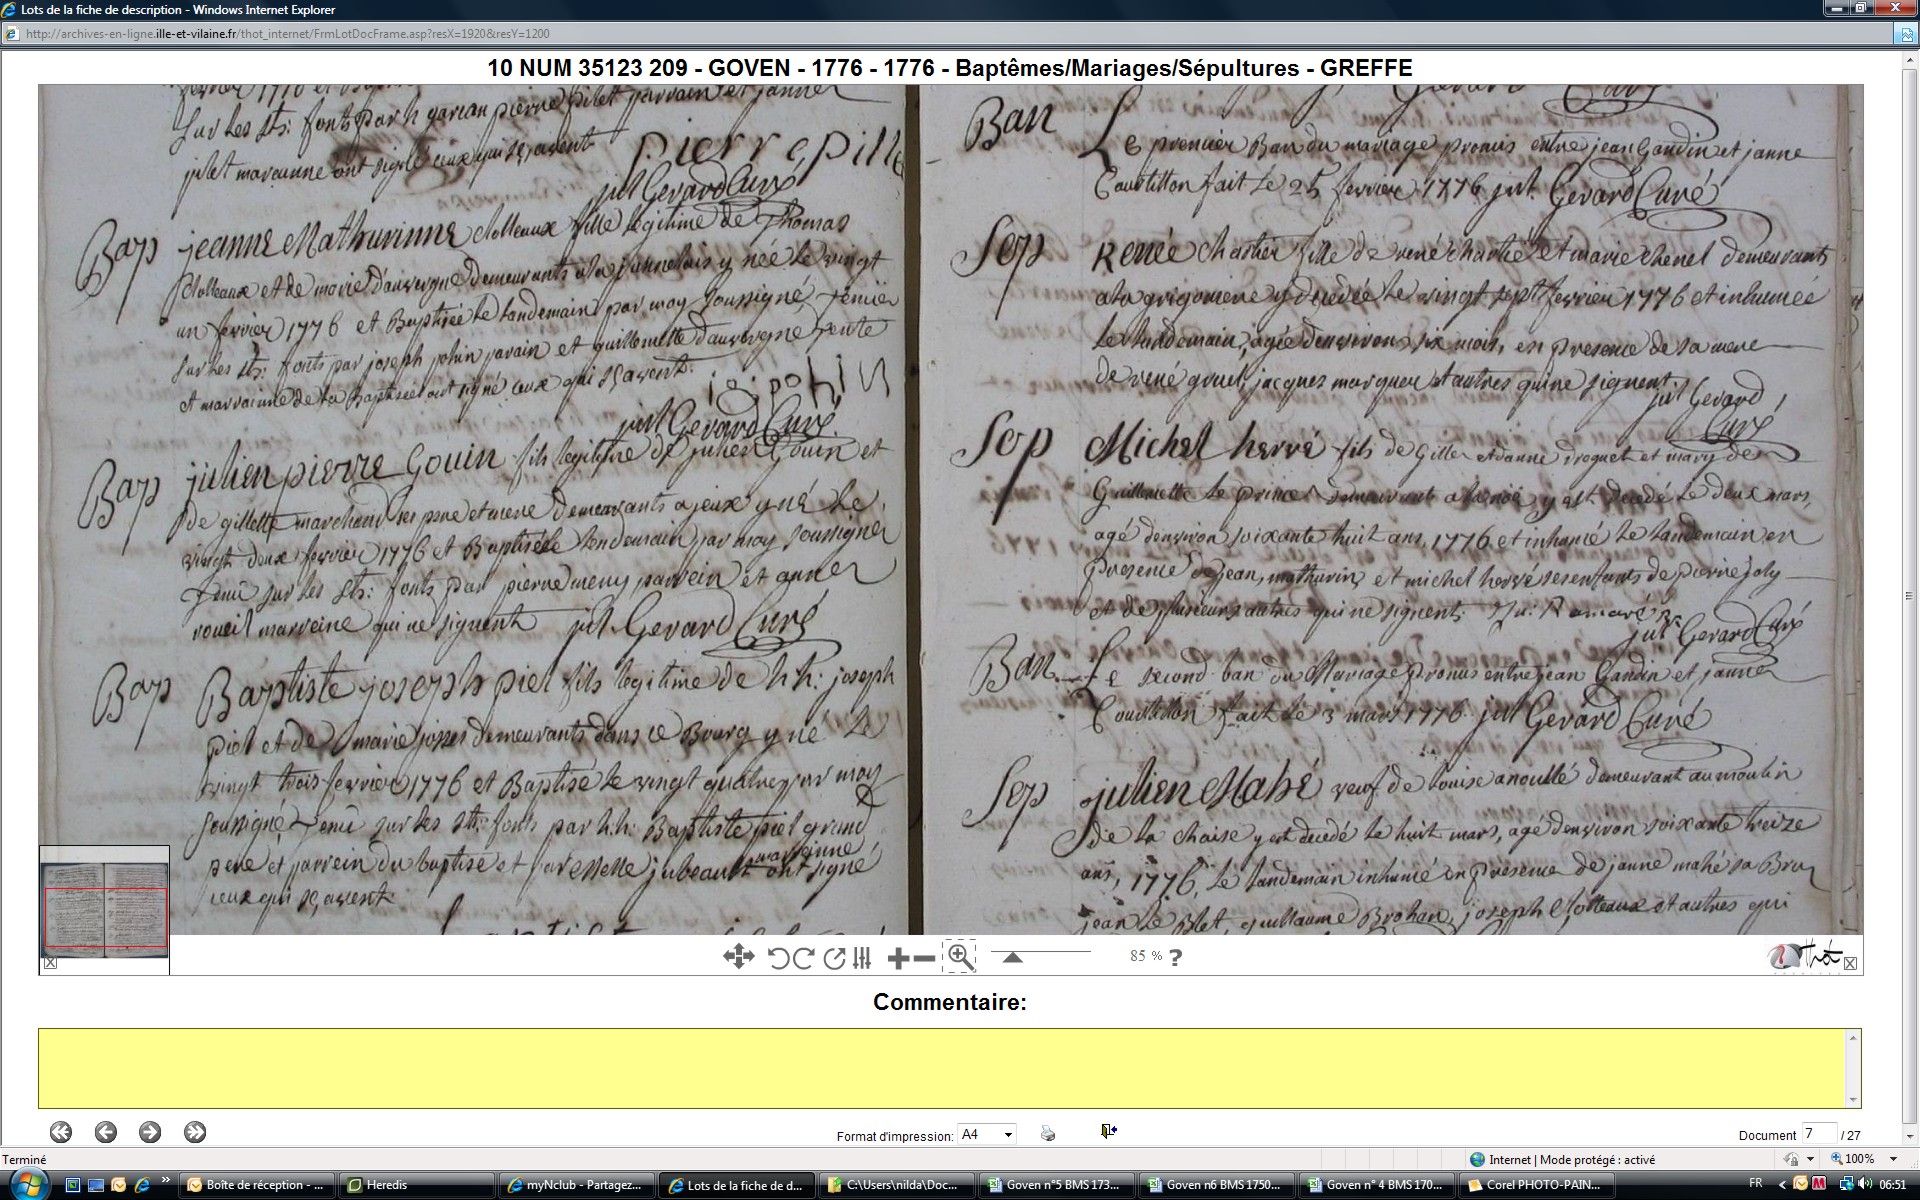 Lots de la fiche de description - Windows Internet Explorer
http://archives-en-ligne.ille-et-vilaine.fr/thot_internet/FrmLotDocFrame.asp?resX=1920&resY=1200
10 NUM 35123 209 - GOVEN - 1776 - 1776 - Baptêmes/Mariages/Sépultures - GREFFE
fevrier 1776 et
Sur les sts: fonts par h garcan pierre pilet parrain et janne
pilet maraine ont signé ceux qui sçavent
pierre pille
jul Gerard Curé
Bap jeanne Mathurinne Clolteaux fille legitime de Thomas
Clolteaux et de marie dauvergne demeurants a la junnelais y née le vingt
un fevrier 1776 et Baptisée le landemain par moy soussigné tenüe
sur les sts: fonts par joseph johin parain et guillemette dauvergne tente
et marrainne de la Baptisée ont signé ceux qui sçavent.
io: johin
jul Gerard Curé
Bap julien pierre Gouin fils legitime de julien Gouin et
de gillette marchand ses pere et mere demeurants a jeux y né le
vingt deux fevrier 1776 et Baptisé le lendemain par moy soussigné
tenü sur les sts: fonts par pierre meny parrein et anne
roueil marreine qui ne signent jul Gerard Curé
Bap Baptiste joseph piel fils legitime de h.h: joseph
piel et de marie josses demeurants dans ce Bourg y né le
vingt trois fevrier 1776 et Baptisé le vingt quatre par moy
soussigné tenü sur les sts: fonts par h.h: Baptiste piel grand
pere et parrein du baptisé et par estelle jubeault marrainne ont signé
ceux qui sçavent
Ban Le premier Ban du mariage promis entre jean Gandin et janne
Courtillon fait le 25 fevrier 1776 jul. Gerard Curé
Sep Renée chartier fille de rené chartié et marie chenel demeurants
a la grigomere y decedée le vingt sept fevrier 1776 et inhumée
le landemain, agée d'environ six mois, en presence de sa mere
de rené gruel, jacques marquer et autres qui ne signent.
jul Gerard
Curé
Sep Michel hervé fils de Gilles et danne droguet et mary de
Guillemette le prince demeurant a la noë y est decedé le deux mars,
agé d'environ soixante huit ans, 1776 et inhumé le landemain en
presence de jean, mathurin, et michel hervé ses enfants de pierre joly
et de plusieurs autres qui ne signent.
jul Gerard Curé
Ban Le second ban du Mariage promis entre jean Gandin et janne
Courtillon fait le 3 mars 1776. jul Gerard Curé
Sep julien Mahé veuf de louise anoullé demeurant au moulin
de la chaise y est decedé le huit mars, agé d'environ soixante treize
ans, 1776, le landemain inhumé en presence de janne mahé sa Bru
jean le Blet, guillaume Brohan, joseph Clolteaux et autres qui
85 % ?
Thot
Commentaire:
Format d'impression: A4
Document 7 / 27
Terminé
Internet | Mode protégé : activé
100%
Boîte de réception - ...
Heredis
myNclub - Partagez...
Lots de la fiche de d...
C:\Users\nilda\Doc...
Goven n°5 BMS 173...
Goven n6 BMS 1750...
Goven n° 4 BMS 170...
Corel PHOTO-PAIN...
FR
06:51